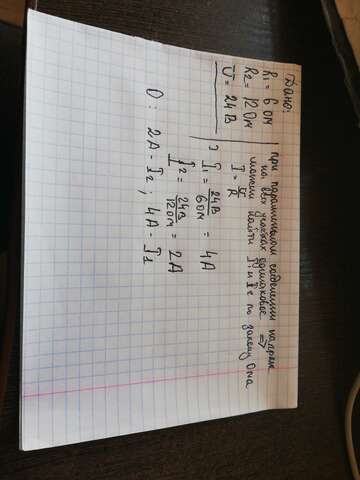 Дано:
R₁ = 6 Ом
R₂ = 12 Ом
U = 24 В
при параллельном соединении напряж
на всех участках одинаковое ⇒
можем найти I₁ и I₂ по закону Ома
I = U/R
I₁ = 24В/6Ом = 4А
I₂ = 24В/12Ом = 2А
О: 2А - I₂ ; 4А - I₁